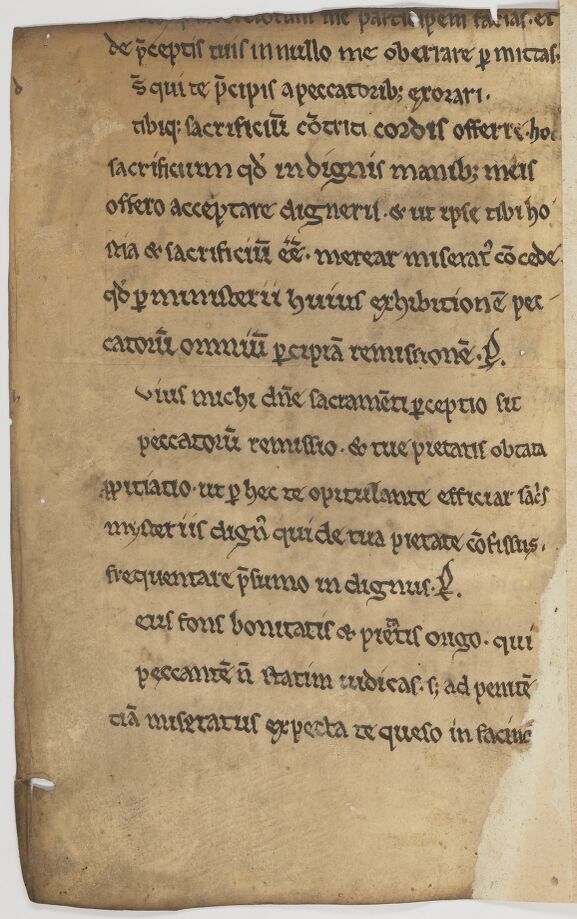 me participem facias. et
de p̄ceptis tuis in nullo me oberrare ꝑ mittas.
S̄ qui te p̄cipis a peccatorib; exorari.
tibiq; sacrificiū cōtriti cordis offerre. ho
sacrificium qd̄ indignis manib; meis
offero acceptare digneris. & ut ipse tibi ho
stia & sacrificiū eē. merear miserat᷒ cōcede
qd̄ ꝑ ministerii huius exhibitionē pec-
catorū omniū ꝑcipiā remissionē. ꝑ.
uius michi dn̄e sacramēti ꝑceptio sit
peccatorū remissio. & tue pietatis obtata
ꝓpitiatio. ut ꝑ hec te opitulante efficiar sac̄s
mysteriis dign᷒ qui de tua pietate cōfisus.
frequentare p̄sumo indignus. ꝑ.
eus fons bonitatis & pietatis origo. qui
peccantē n̄ statim iudicas. s; ad penitē
tiā miseratus expecta te queso in facinꝰ